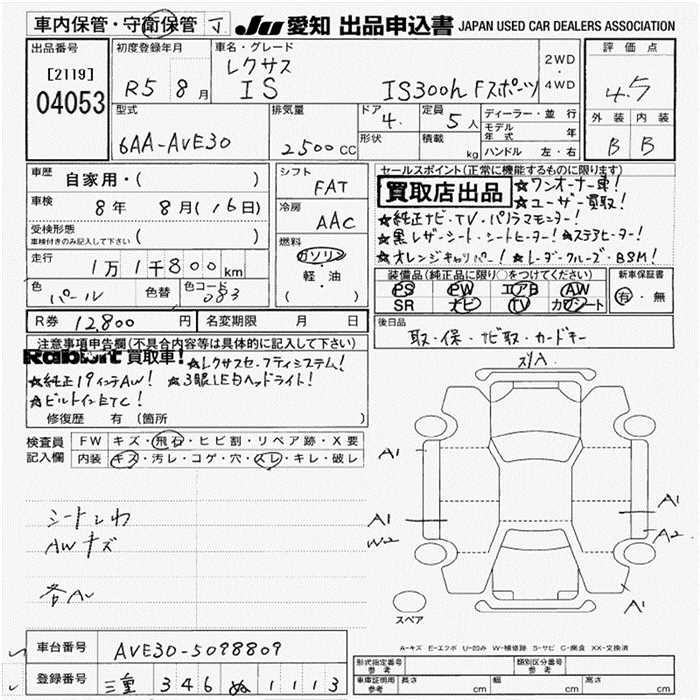 車内保管・守衛保管 JU 愛知 出品申込書 JAPAN USED CAR DEALERS ASSOCIATION
出品番号
[2119]
04053
初度登録年月
R5 8 月
車名・グレード
レクサス
IS IS300h Fスポーツ
2WD
・
4WD
評価点
4.5
外装 内装
B B
型式
6AA-AVE30
排気量
2500 CC
ドア
4.
形状
定員
5 人
積載
kg
ディーラー・並行
モデル年式 年
ハンドル 左・右
車歴 自家用・( )
車検 8年 8月(16日)
受検形態
車検付きのみ記入して下さい ( )
走行 1万1千800km
色 パール 色替 色コード 083
シフト
FAT
冷房
AAC
燃料
ガソリン
・
軽・油
( )
セールスポイント(正常に機能するものに限ります)
買取店出品 ★ワンオーナー車!
★ユーザー買取!
★純正ナビ・TV・パノラマモニター!
★黒レザーシート・シートヒーター! ★ステアヒーター!
★オレンジキャリパー! ★レーダークルーズ・BSM!
装備品(純正品に限り○をつけてください) 新車保証書
PS PW エアB AW
SR ナビ TV カワシート
有・無
R券 12,800 円 名変期限 月 日
後日品
取・保・ナビ取・カードキー
注意事項申告欄(不具合内容等は具体的に記入して下さい)
Rabbit 買取車! ★レクサスセーフティシステム!
★純正19インチAW! ★3眼LEDヘッドライト!
★ビルトインETC!
修復歴 有 (箇所 )
検査員記入欄
FW キズ・飛石・ヒビ割・リペア跡・X要
内装 キズ・汚レ・コゲ・穴・スレ・キレ・破レ
シートシワ
AWキズ
各AU
A1
A1
W2
A1
A2
A1
スペア
A-キズ E-エクボ U-凹み W-補修跡 S-サビ C-腐食 XX-交換済
車台番号 AVE30-5098809
登録番号 三重 346 ぬ 1113
形式指定番号 参考
類別区分番号 参考
車庫証明用 参考 長さ cm 幅 cm 高さ cm